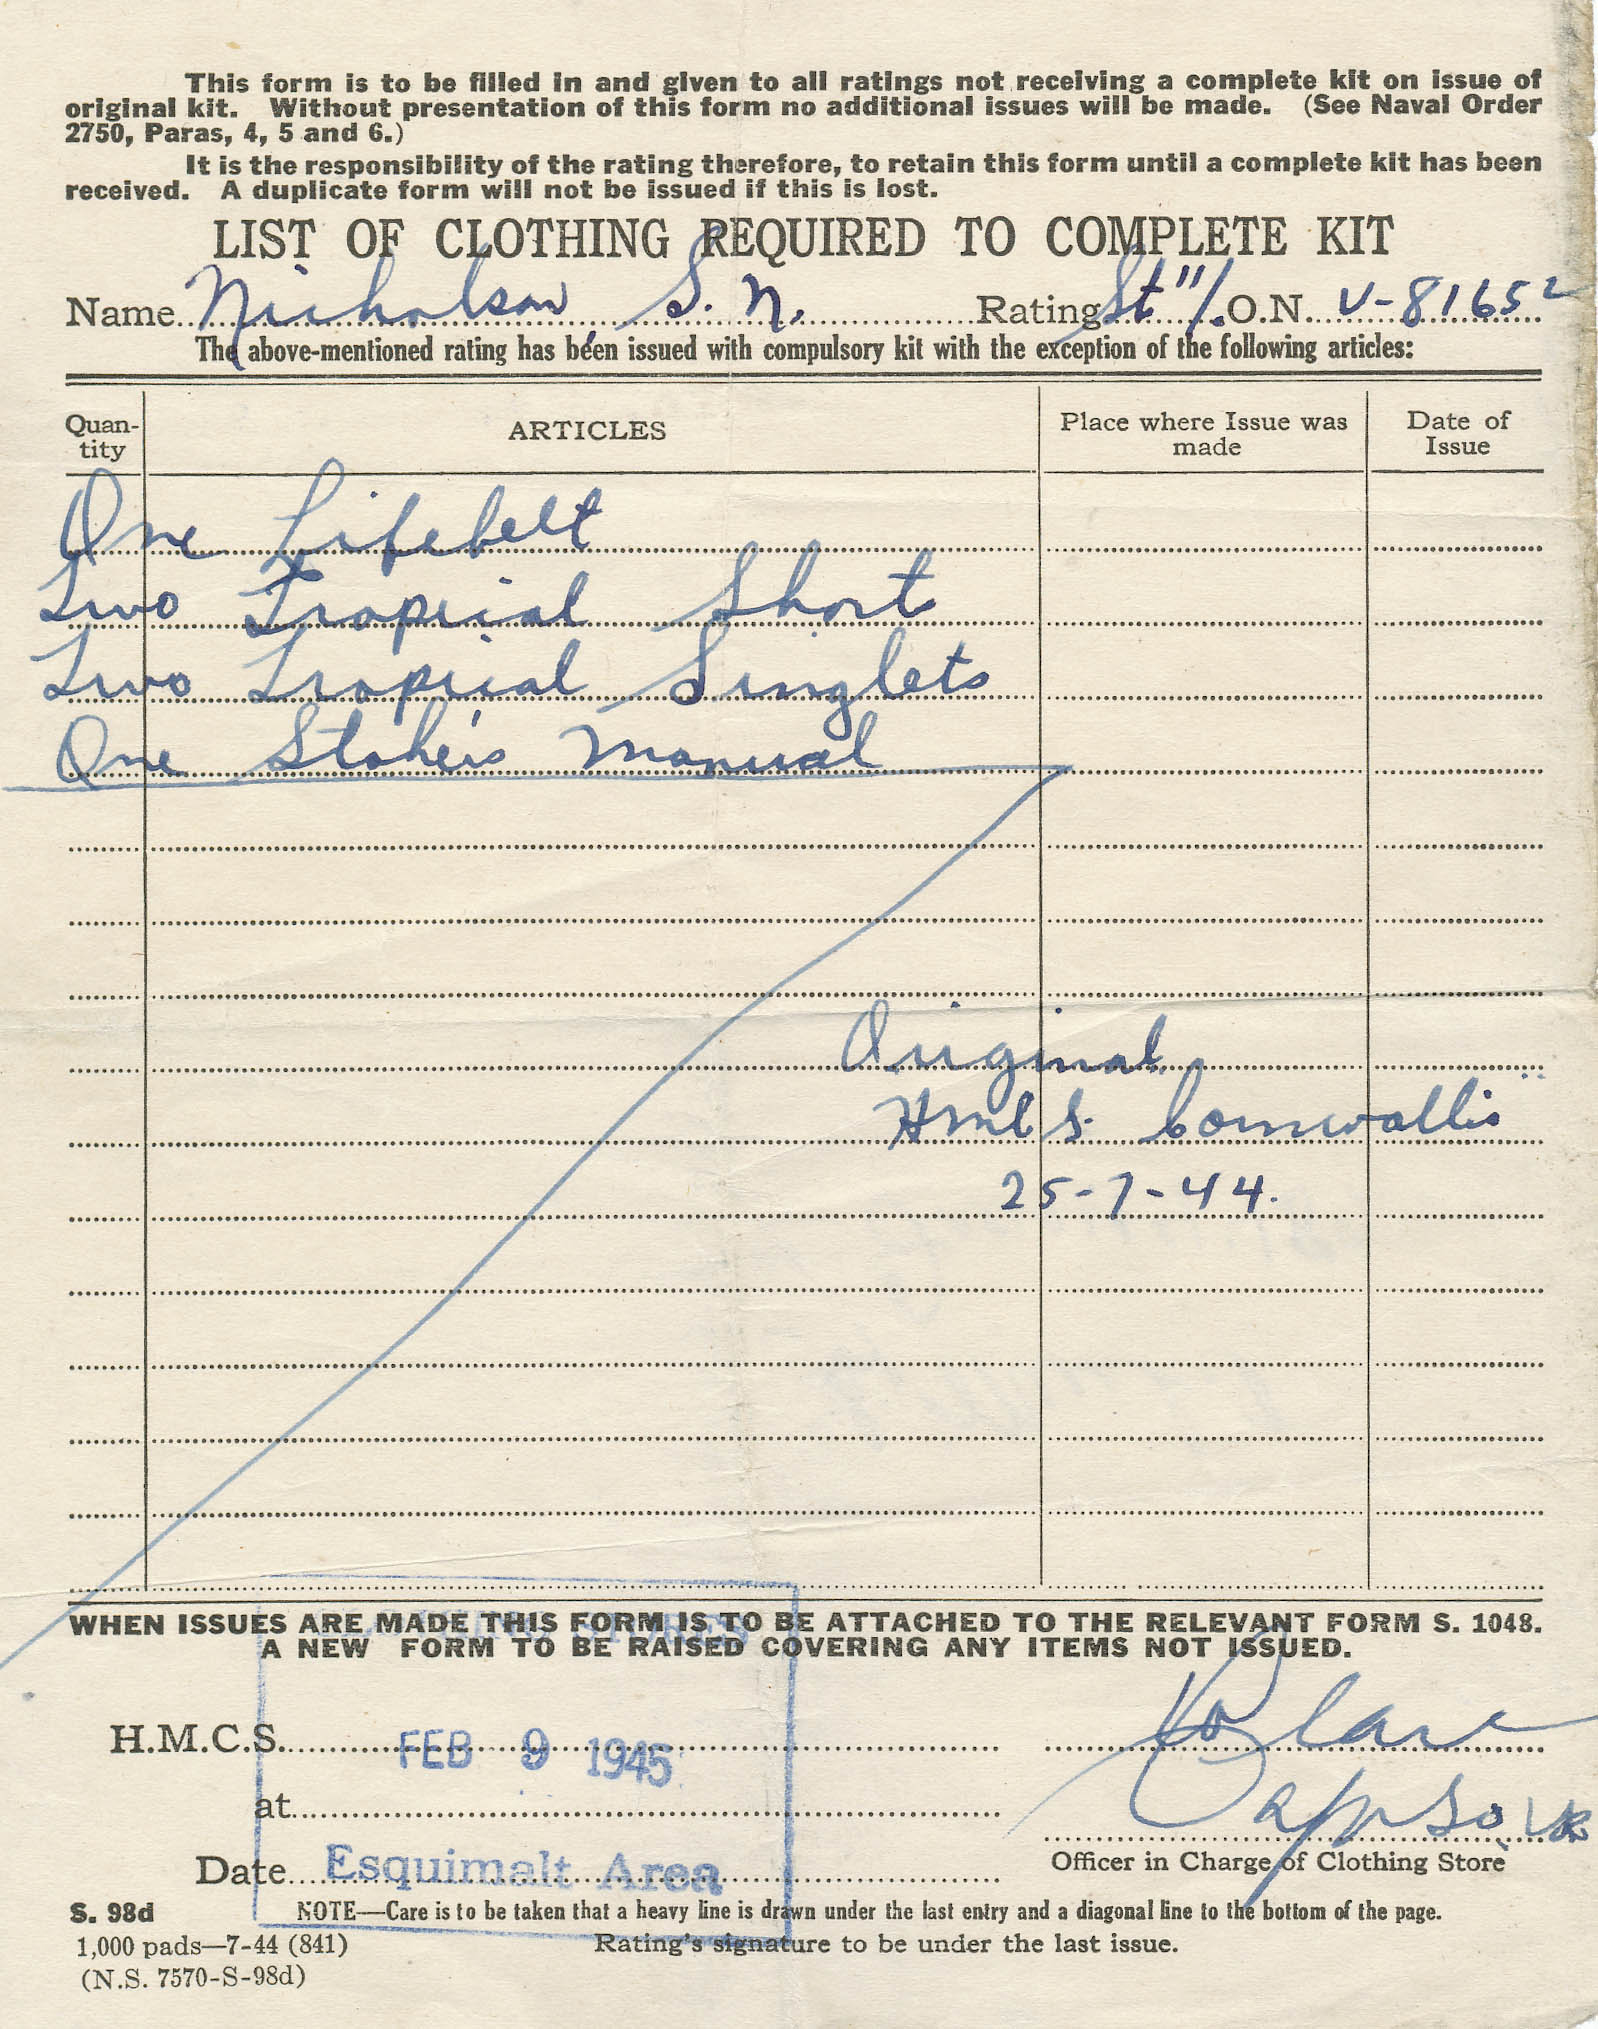 This form is to be filled in and given to all ratings not receiving a complete kit on issue of
original kit. Without presentation of this form no additional issues will be made. (See Naval Order
2750, Paras, 4, 5 and 6.)
It is the responsibility of the rating therefore, to retain this form until a complete kit has been
received. A duplicate form will not be issued if this is lost.
LIST OF CLOTHING REQUIRED TO COMPLETE KIT
Name Nicholson, S. N. Rating St "/. O.N. V-81652
The above-mentioned rating has been issued with compulsory kit with the exception of the following articles:
Quan-
tity
ARTICLES
Place where Issue was
made
Date of
Issue
One Lifebelt
Two Tropical Shorts
Two Tropical Singlets
One Stoker's Manual
Original
HMCS. Cornwallis
25-7-44.
WHEN ISSUES ARE MADE THIS FORM IS TO BE ATTACHED TO THE RELEVANT FORM S. 1048.
A NEW FORM TO BE RAISED COVERING ANY ITEMS NOT ISSUED.
H.M.C.S. FEB 9 1945
at
Date Esquimalt Area
Officer in Charge of Clothing Store
S. 98d
NOTE—Care is to be taken that a heavy line is drawn under the last entry and a diagonal line to the bottom of the page.
1,000 pads—7-44 (841)
Rating's signature to be under the last issue.
(N.S. 7570-S-98d)